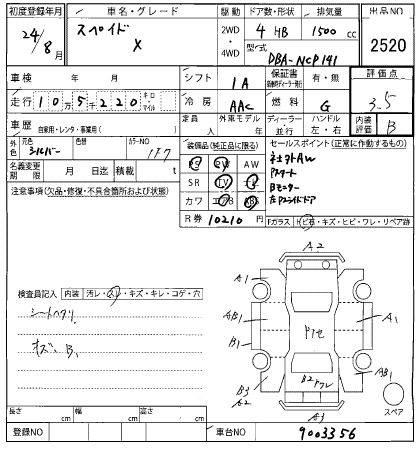 初度登録年月 車名・グレード 駆動 ドア数・形状 排気量 出品NO
24/8月 スペイド X 2WD・4WD 4 HB 1500cc 2520
型式 DBA-NCP141
車検 年 月 シフト IA 保証書 有・無 評価点
走行 10万5千220 キロ・マイル 冷房 AAC 燃料 G 3.5
車歴 自家用・レンタ・事業用( ) 定員 人 外車モデル ディーラー・並行 ハンドル 左・右 内装評価 B
外色 元色 シルバー 色替 カラーNO 1F7
装備品(純正品に限る) セールスポイント(正常に作動するもの)
名義変更期限 月 日迄 積載 t
PS PW AW
SR TV ナビ
カワ エアB ABS
R券 10210円
社外AW
Pスタート
Bモニター
左Pスライドドア
注意事項(欠品・修復・不具合箇所および状態)
Fガラス ヒビ石・キズ・ヒビ・ワレ・リペア跡
検査員記入 内装 汚レ・スレ・キズ・キレ・コゲ・穴
シートヘタリ
キズ・B1
A2
A1
AB1
B1
A1
AB1
B3
A2
B2
A3
スペア
長さ cm 幅 cm 高さ cm
登録NO 車台NO 9003356